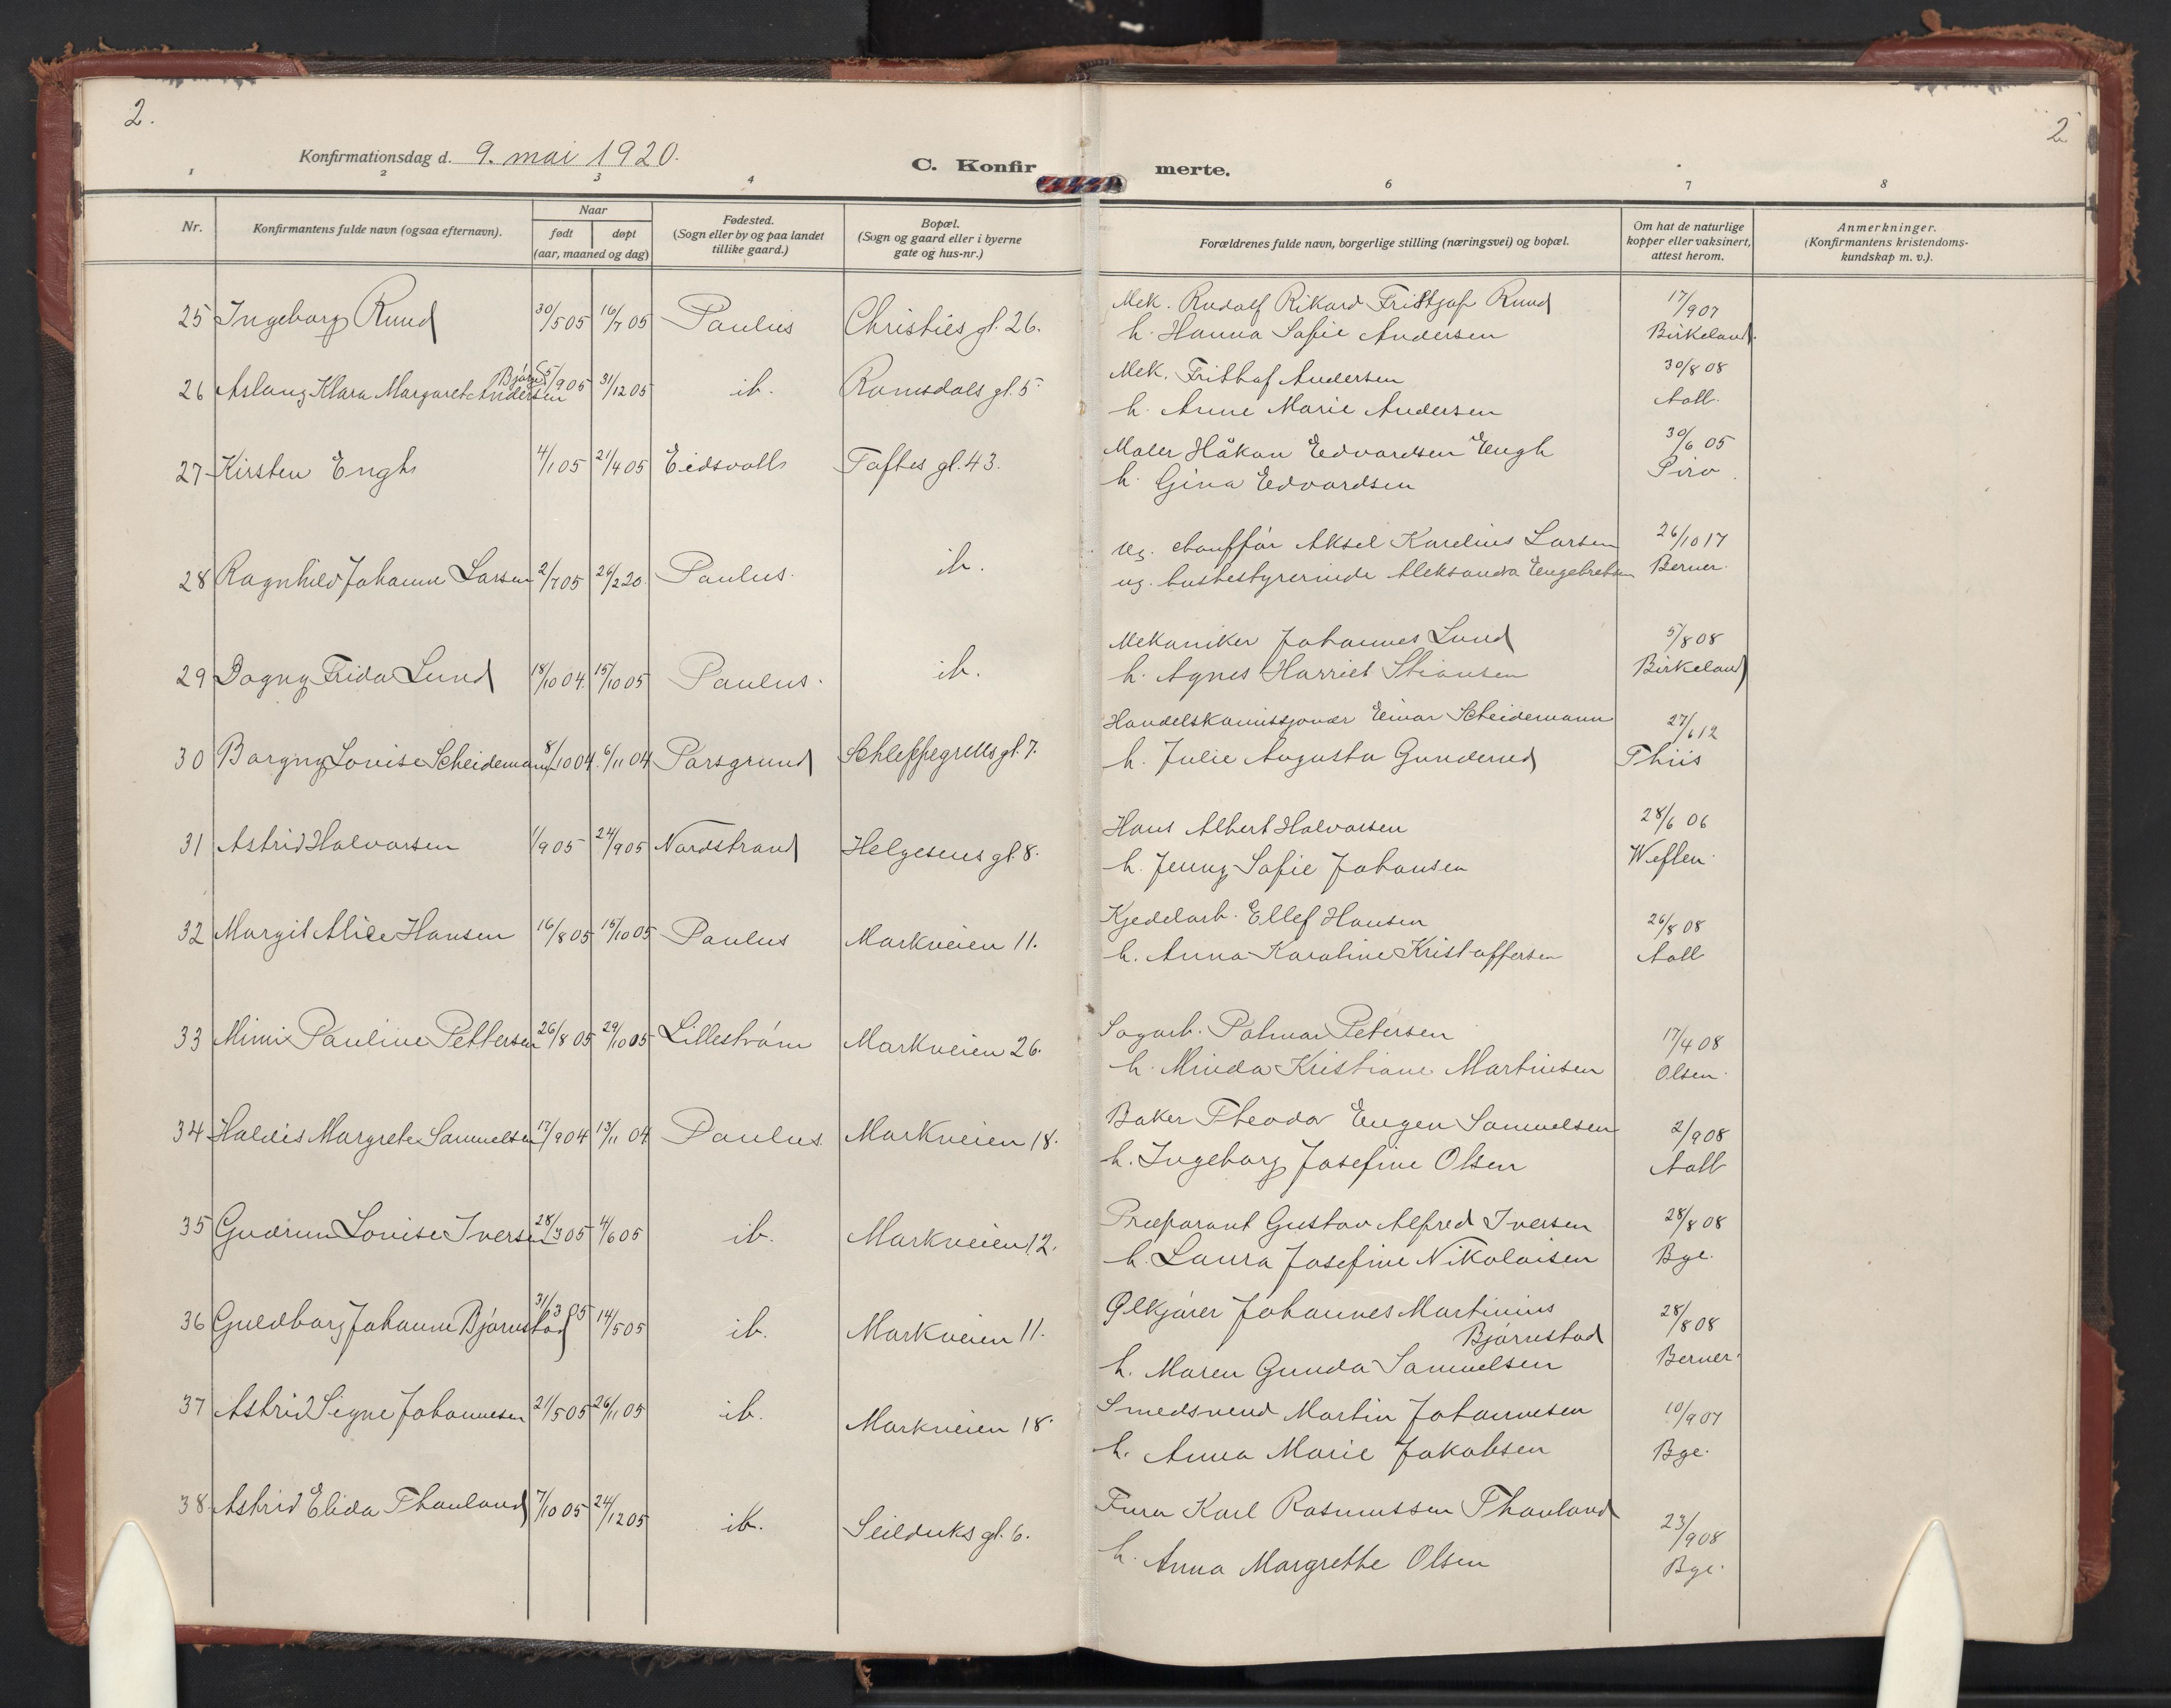 2.
2
Konfirmationsdag d. 9. mai 1920.
C. Konfir merte.
1 2 3 4 6 7 8
Nr. Konfirmantens fulde navn (ogsaa efternavn). Naar født døpt (aar, maaned og dag) Fødested. (Sogn eller by og paa landet tillike gaard.) Bopæl. (Sogn og gaard eller i byerne gate og hus-nr.) Forældrenes fulde navn, borgerlige stilling (næringsvei) og bopæl. Om hat de naturlige kopper eller vaksinert, attest herom. Anmerkninger. (Konfirmantens kristendomskundskap m. v.).
25 Ingeborg Ruud 30/5 05 16/7 05 Paulus Christies gt. 26. Mek. Rudolf Rikard Frittjof Ruud 17/9 07
h. Hanna Sofie Andersen Birkeland
26 Aslaug Klara Margarete Andersen 5/9 05 31/12 05 ib. Romsdals gt. 5 Mek. Frithof Andersen 30/8 08
h. Anne Marie Andersen Aall.
27 Kirsten Engh 4/1 05 21/4 05 Eidsvoll Toftes gt. 43. Maler Håkon Edvardsen Engh 30/6 05
h. Gina Edvardsen Piro
28 Ragnhild Johanne Larsen 2/7 05 26/2 20. Paulus. ib. ug. chauffør Aksel Karelius Larsen 26/10 17
ug. husbestyrerinde Aleksandra Engebretsen Berner.
29 Dagny Frida Lund 18/10 04. 15/10 05 Paulus. ib. Mekaniker Johannes Lund 5/8 08
h. Agnes Harriet Stiansen Birkeland
30 Borgny Lovise Scheidemann 8/10 04. 6/11 04 Porsgrund Schleppegrells gt. 7. Handelskomissjonær Einar Scheidemann 27/6 12
h. Julie Augusta Gunderud Thiis
31 Astrid Halvorsen 1/9 05 24/9 05 Nordstrand Helgesens gt. 8. Hans Albert Halvorsen 28/6 06
h. Jenny Sofie Johansen Weflen.
32 Margit Alice Hansen 16/8 05 15/10 05 Paulus Markveien 11. Kjedelarb. Ellef Hansen 26/8 08
h. Anna Karoline Kristoffersen Aall
33 Mimi Pauline Pettersen 26/8 05 29/10 05 Lillestrøm Markveien 26. Sagarb. Palmar Petersen 17/4 08
h. Minda Kristiane Martinsen Olsen.
34 Haldis Margrete Samuelsen 17/9 04 13/11 04 Paulus Markveien 18. Baker Theodor Eugen Samuelsen 2/9 08
h. Ingeborg Josefine Olsen Aall
35 Gudrun Lovise Iversen 28/3 05 4/6 05 ib. Markveien 12. Præparant Gustav Alfred Iversen 28/8 08
h. Laura Josefine Nikolaisen Bge.
36 Guldborg Johanne Bjørnstad 31/3 05 14/5 05 ib. Markveien 11. Ølkjører Johannes Martinius 28/8 08
Bjørnstad
h. Maren Gunda Samuelsen Berner.
37 Astrid Signe Johannesen 21/5 05 26/11 05 ib. Markveien 18. Smedsvend Martin Johannesen 10/9 07
h. Anna Marie Jakobsen Bge.
38. Astrid Elida Thauland 7/10 05 24/12 05 ib. Seilduks gt. 6. Furer Karl Rasmussen Thauland 23/9 08
h. Anna Margrethe Olsen Bge.